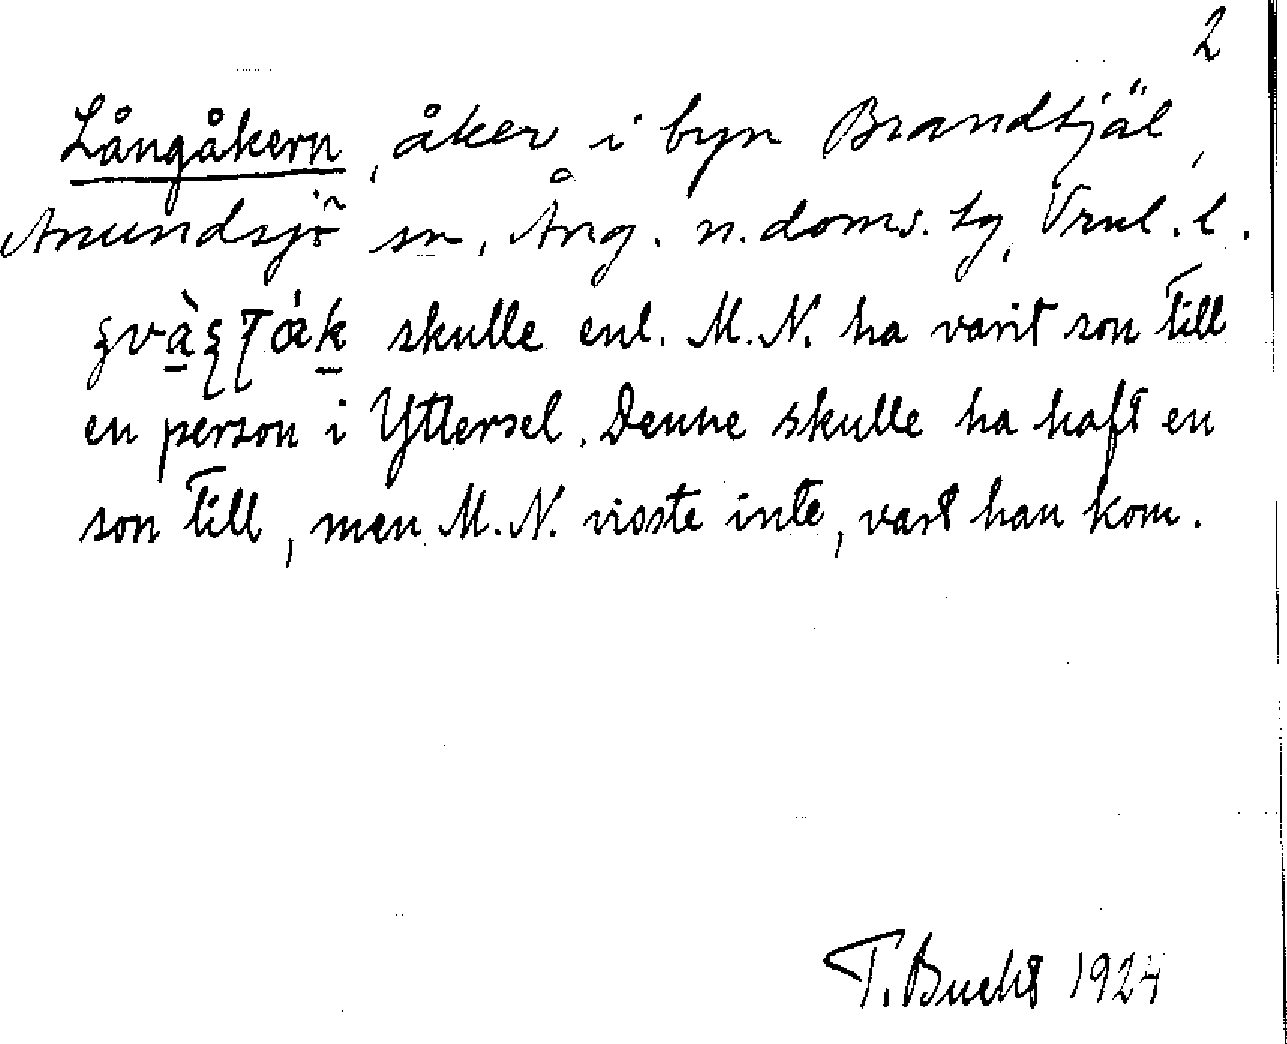 2
Långåkern, åker i byn Brandkjäl,
Anundsjö sn, Ång. n. doms. sg, Vrnl. l.
skulle enl. M. N. ha varit son till
en person i Yttersel. Denne skulle ha haft en
son till, men M. N. visste inte, vart han kom.
T. Bucht 1924